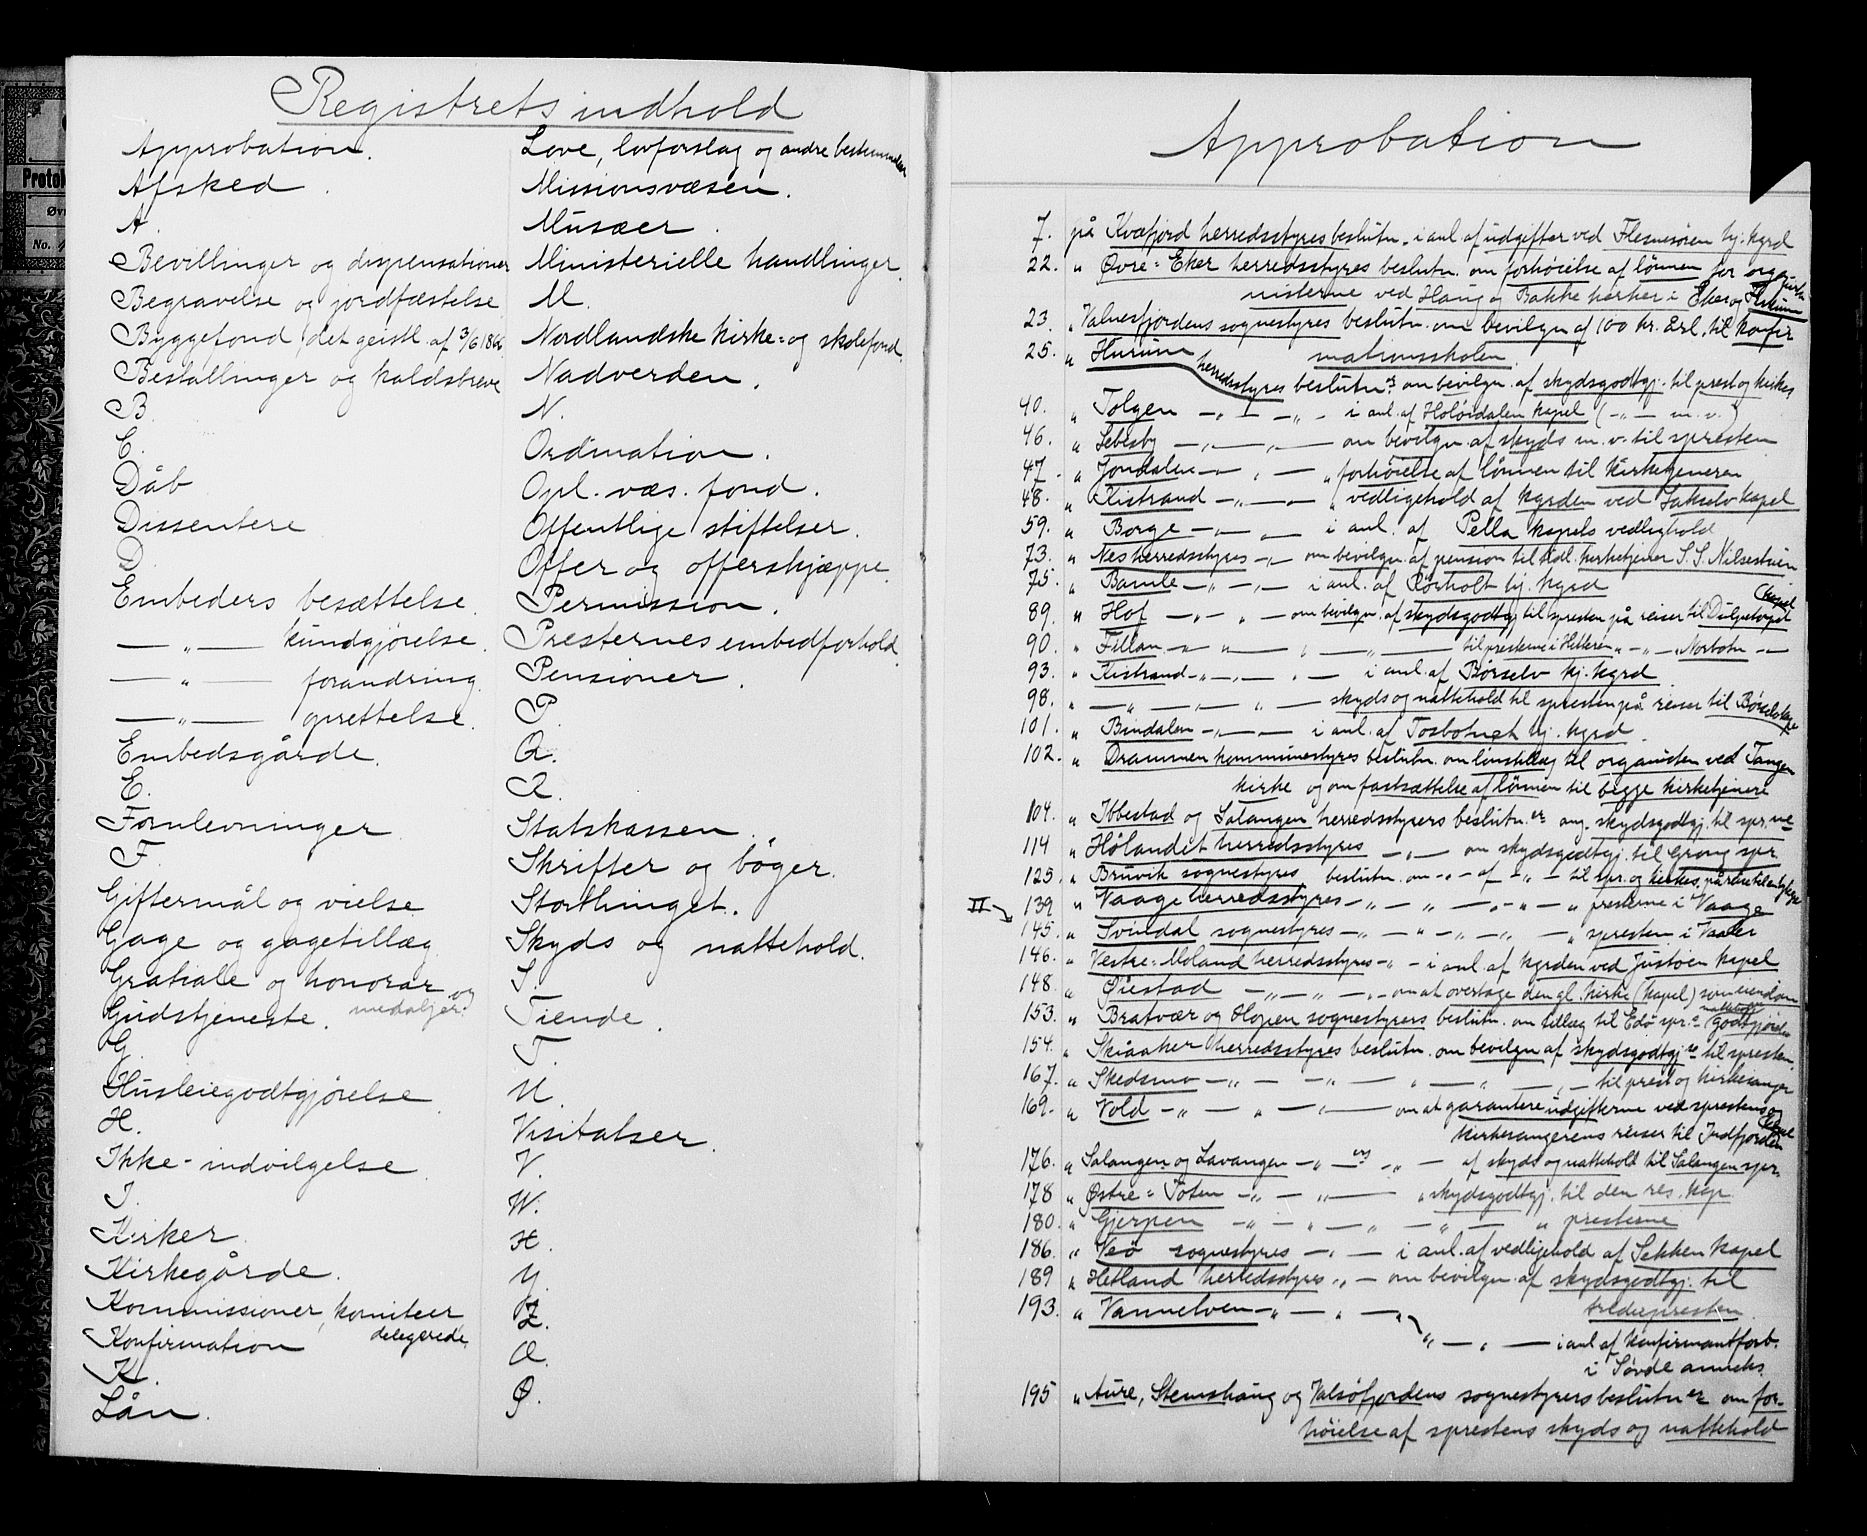 Protok
No.
Registrets indhold
Approbation.
Afsked.
A.
Bevillinger og dispensationer
Begravelse og jordfæstelse
Byggefond, det geistl. af 3/6 1866
Bestallinger og kaldsbreve
B.
C.
Dåb
Dissentere
D.
Embeders besættelse.
— „ — kundgjørelse.
— „ — forandring.
— „ — oprettelse.
Embedsgårde.
E.
Fornlevninger
F.
Giftermål og vielse
Gage og gagetillæg
Gratiale og honorar og
Gudstjeneste. medaljer.
G.
Husleiegodtgjørelse
H.
Ikke-indvilgelse
I.
Kirker.
Kirkegårde.
Kommissioner, komiteer
Konfirmation delegerede
K.
Lån.
Love, lovforslag og andre bestemmelser
Missionsvæsen.
Musæer.
Ministerielle handlinger.
M.
Nordlandske kirke- og skolefond.
Nadverden.
N.
Ordination.
Opl. væs. fond.
Offentlige stiftelser.
Offer og offerskjæppe.
Permission.
Presternes embedforhold.
Pensioner.
P.
Q.
R.
Statskassen.
Skrifter og bøger.
Storthinget.
Skyds og nattehold.
S.
Tiende.
T.
U.
Visitatser.
V.
W.
X.
Y.
Z.
Æ.
Ø.
Approbation
7. på Kvæfjord herredsstyres beslutn. i anl. af udgifter ved Flesnesøren hj. kgrd
22. „ Øvre-Eker herredsstyres beslutn. om forhøielse af lønnen for orga-
nisterne ved Haug og Bakke kirker i Eker og Fiskum
23. „ Valnesfjordens sognestyres beslutn. om bevilgn. af 100 kr. årl. til konfir
mationsskolen.
25. „ Hurum herredsstyres beslutn.er om bevilgn. af skydsgodtgj. til prest og kirkes
40. „ Tolgen — „ — „ — i anl. af Holøidalen kapel ( — „ — m. v. )
46. „ Lebesby — „ — „ — om bevilgn. af skyds m. v. til spresten
47. „ Jondalen — „ — „ forhøielse af lønnen til kirketjeneren
48. „ Kistrand — „ — „ — „ vedligehold af kgrden ved Lakselv kapel
59. „ Borge — „ — „ — i anl. af Pella kapels vedligehold
73. „ Nes herredsstyres — „ — om bevilgn. af pension til fhv. kirketjener S. S. Nilsestuen
75. „ Bamle — „ — „ — i anl. af Rørholt hj. kgrd
89. „ Hof — „ — „ — om bevilgn. af skydsgodtgj. til spresten på reiser til Dulpetorpet kapel
90. „ Fillan — „ — „ — „ — til presterne i Hitteren — „ — „ Norbotn — „ —
93. „ Kistrand — „ — „ — i anl. af Børselv kj. kgrd
98. „ — „ — „ — „ — skyds og nattehold til spresten på reiser til Børselv kape
101. „ Bindalen — „ — i anl. af Tosbotnet hj. kgrd.
102. „ Drammen kommunestyres beslutn. om lønstillæg til organisten ved Tangen
kirke og om fastsættelse af lønnen til begge kirketjenere
104. „ Ibbestad og Salangen herredsstyrers beslutn.er ang. skydsgodtgj. til spr.ne
114 „ Hølandet herredsstyres — „ — om skydsgodtgj. til Grong spr.
125. „ Bruvik sognestyres beslutn. om — „ — af — „ — til spr. og kirkes.
II → 139 „ Vaage herredsstyres — „ — „ — „ — „ — „ presterne i Vaage
145. „ Svindal sognestyres — „ — „ — „ — „ — „ spresten i Vaaler
146. „ Vestre-Moland herredsstyres — „ — i anl. af kgrden ved Justøen kapel
148. „ Øiestad — „ — „ — „ — om at overtage den gl. kirke (kapel) som eiendom
153. „ Bratvær og Hopen sognestyrers beslutn. om tillæg til Edø spr.s nattehold
154. „ Skiaaker herredsstyres beslutn. om bevilgn. af skydsgodtgj. til spresten.
167. „ Skedsmo — „ — „ — „ — „ — „ — til prest og kirkesanger
169. „ Vold — „ — „ — „ — om at garantere udgifterne ved sprestens og
kirkesangerens reiser til Indfjorden kapel
176. „ Salangen og Lavangen — „ — „ — af skyds og nattehold til Salangen spr.
178 „ Østre-Toten — „ — „ — „ skydsgodtgj. til den res. kap.
180. „ Gjerpen — „ — „ — „ — „ — „ presterne
186. „ Veø sognestyres — „ — i anl. af vedligehold af Sekken kapel
189 „ Hetland herredsstyres „ — om bevilgn. af skydsgodtgj. til
stedepresten
193. „ Vannelven — „ — „ —
„ — „ — i anl. af konfirmantforb.
i Søvde anneks.
195 „ Aure, Stemshaug og Valsøfjordens sognestyrers beslutn.er om for-
høielse af sprestens skyds og nattehold